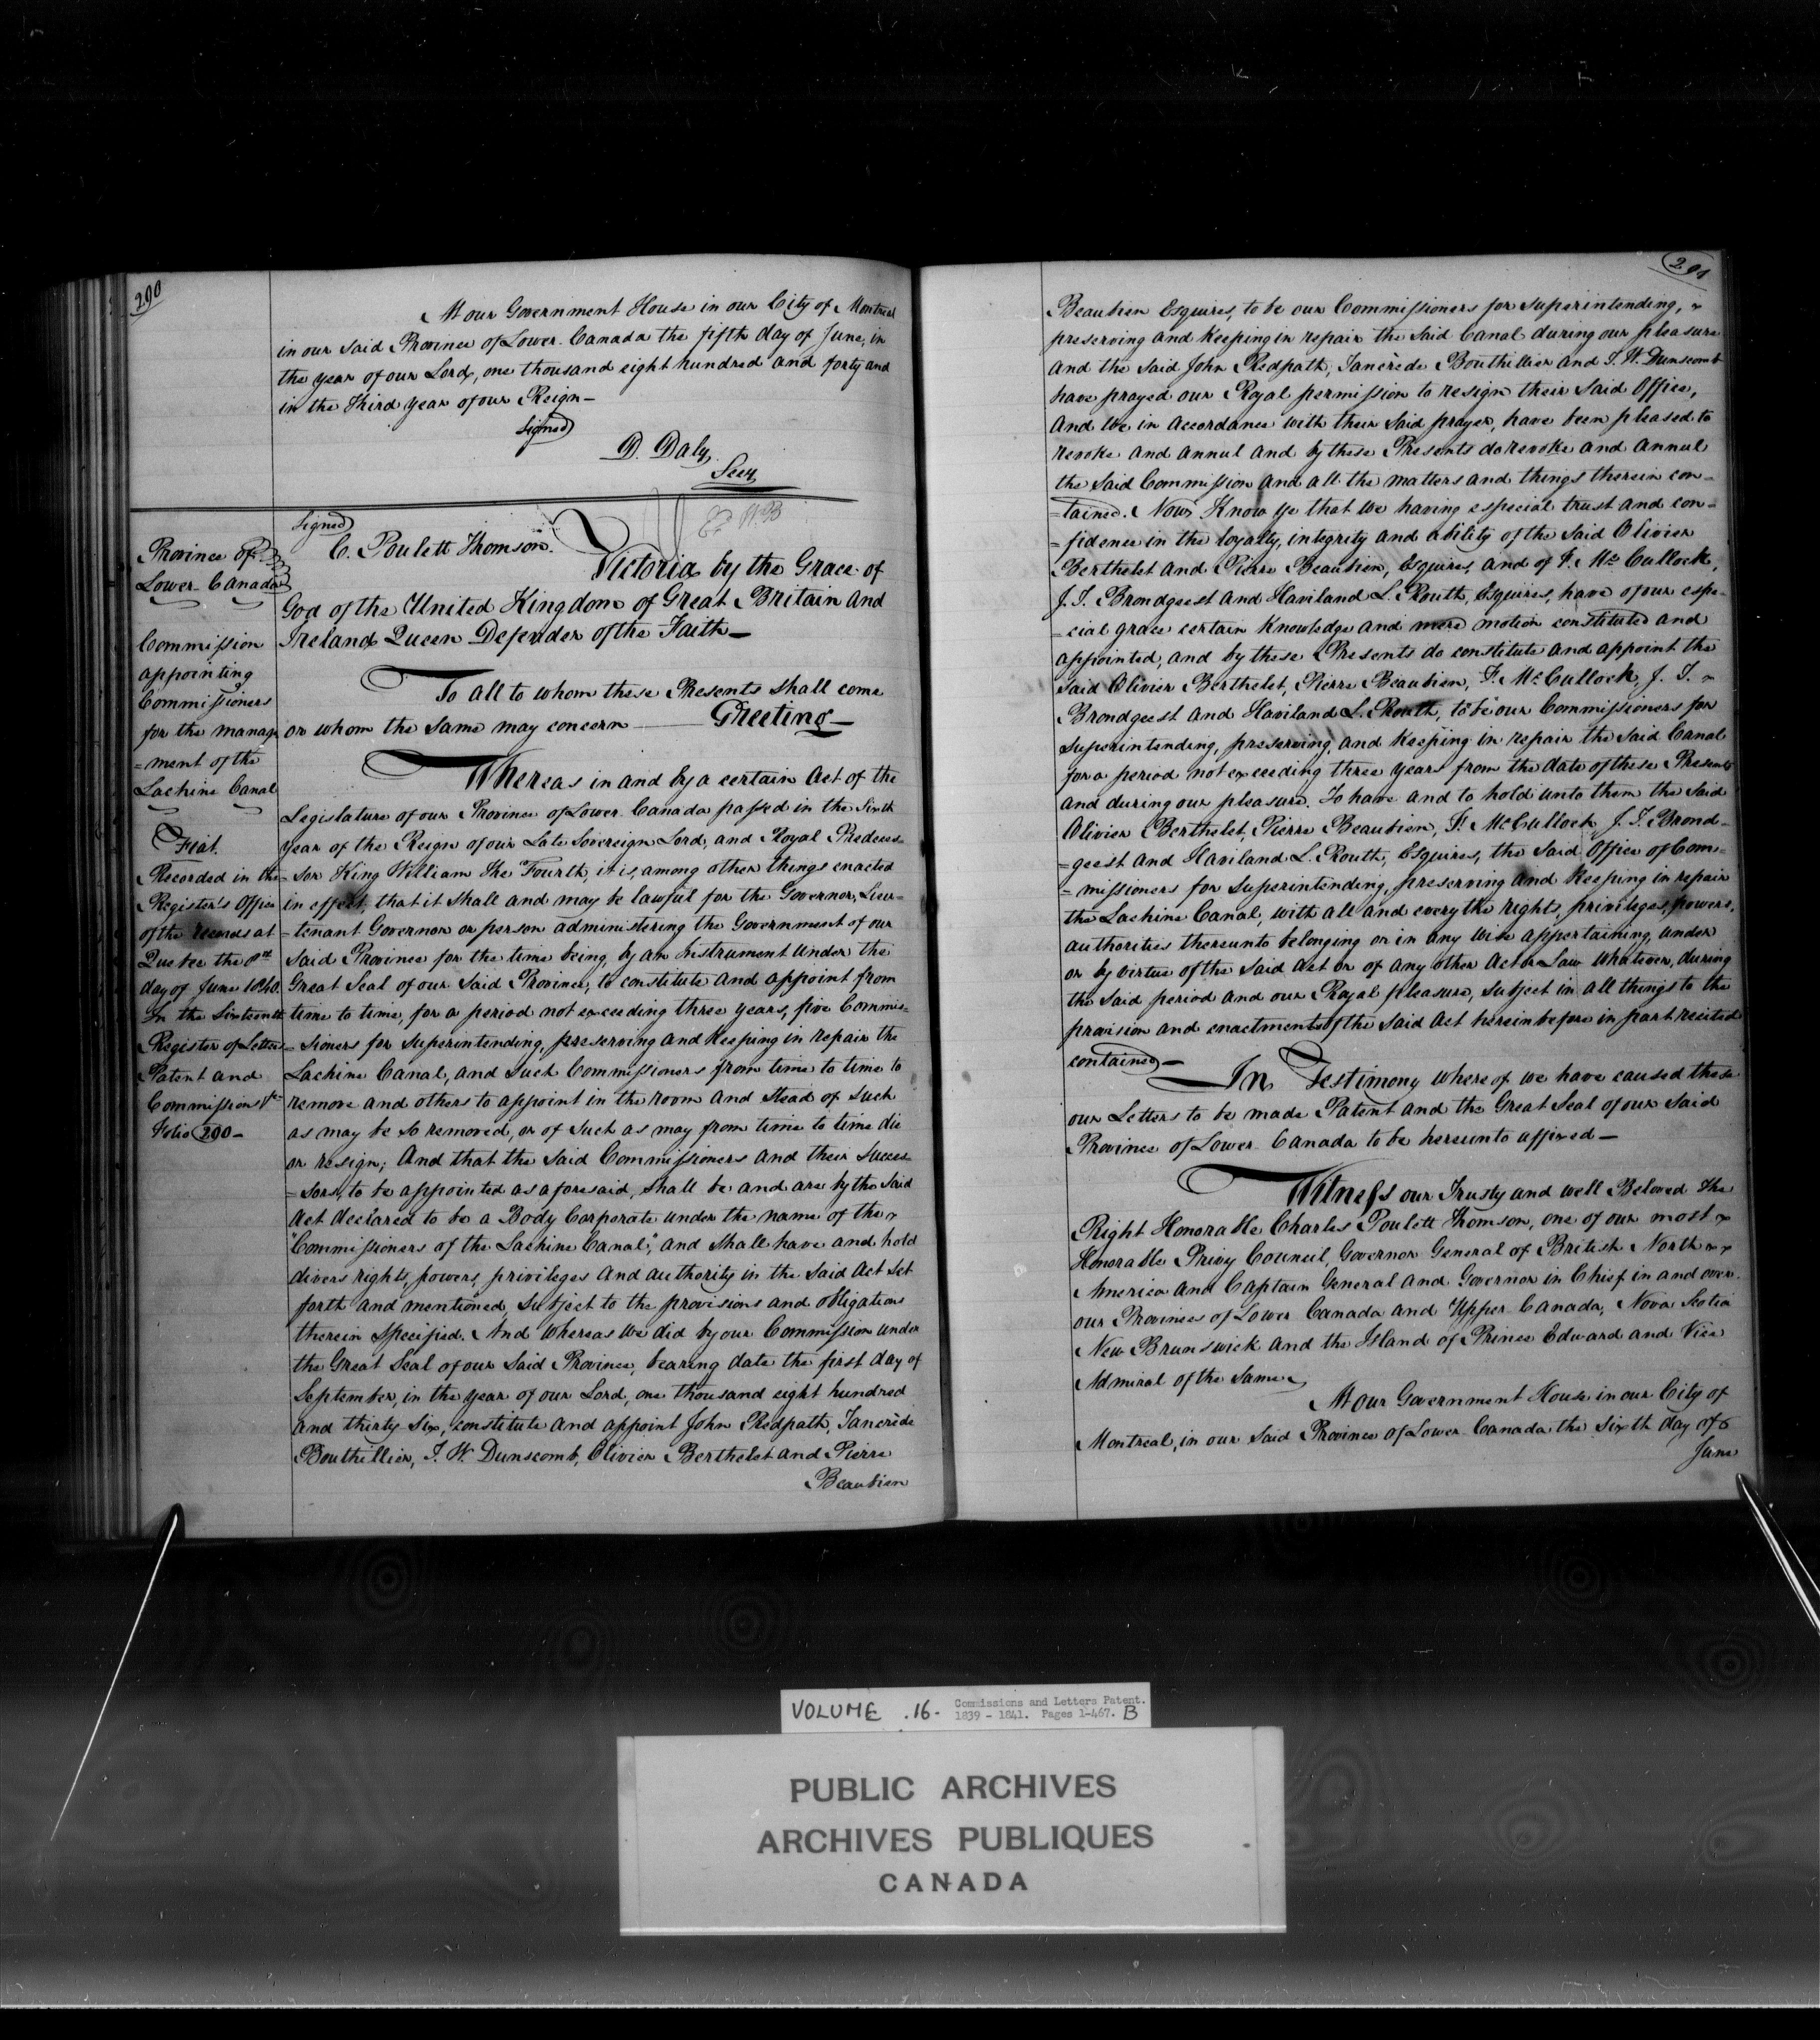 290
At our Government House in our City of Montreal
in our said Province of Lower Canada the fifth day of June, in
the year of our Lord, one thousand eight hundred and forty and
in the Third year of our Reign—
Signed
D. Daly
Secy
Province of
Lower Canada
Commission
appointing
Commissioners
for the manage
=ment of the
Lachine Canal
Fiat.
Recorded in the
Register's Office
of the records at
Quebec the
day of June 1840.
In the Sixteenth
Register of Letters
Patent and
Commissions &c
Folio 290—
Signed
C. Poulett Thomson.
Victoria by the Grace of
God of the United Kingdom of Great Britain and
Ireland Queen Defender of the Faith—
To all to whom these Presents shall come
or whom the same may concern — Greeting—
Whereas in and by a certain Act of the
Legislature of our Province of Lower Canada passed in the Sixth
year of the Reign of our Late Sovereign Lord, and Royal Predeces=
=sor King William the Fourth, it is, among other things enacted
in effect, that it shall and may be lawful for the Governor, Lieu=
=tenant Governor or person administering the Government of our
said Province for the time being, by an Instrument under the
Great Seal of our said Province, to constitute and appoint from
time to time, for a period not exceeding three years, five Commis=
=sioners for superintending, preserving and keeping in repair the
Lachine Canal, and such Commissioners from time to time to
remove and others to appoint in the room and stead of such
as may be so removed, or of such as may from time to time die
or resign; And that the said Commissioners and their Succes=
=sors, to be appointed as aforesaid, shall be and are by the said
Act declared to be a Body Corporate under the name of the
"Commissioners of the Lachine Canal", and shall have and hold
divers rights, powers, privileges and authority in the said Act set
forth and mentioned, subject to the provisions and obligations
therein specified. And whereas We did by our Commission under
the Great Seal of our said Province, bearing date the first day of
September, in the year of our Lord, one thousand eight hundred
and thirty six, constitute and appoint John Redpath, Tancrède
Bouthillier, J. W. Dunscomb, Olivier Berthelet and Pierre
Beaubien
291
Beaubien Esquires, to be our Commissioners for superintending,
preserving and keeping in repair the said Canal during our pleasure
and the said John Redpath, Tancrède Bouthillier and J. W. Dunscomb
have prayed our Royal permission to resign their said Office,
And We in accordance with their said prayer, have been pleased to
revoke and annul and by these Presents do revoke and annul
the said Commission and all the matters and things therein con=
=tained. Now Know Ye that We having especial trust and con=
=fidence in the loyalty, integrity and ability of the said Olivier
Berthelet and Pierre Beaubien, Esquires, and of F. McCullock,
J. T. Brondgeest and Haviland L. Routh, Esquires, have of our espe=
=cial grace certain knowledge and mere motion constituted and
appointed, and by these Presents do constitute and appoint the
said Olivier Berthelet, Pierre Beaubien, F. McCullock, J. T.
Brondgeest and Haviland L. Routh, to be our Commissioners for
superintending, preserving, and keeping in repair the said Canal
for a period not exceeding three years from the date of these Presents
and during our pleasure. To have and to hold unto them the said
Olivier Berthelet, Pierre Beaubien, F. McCullock, J. T. Brond=
=geest and Haviland L. Routh, Esquires, the said Office of Com=
=missioners for superintending, preserving and keeping in repair
the Lachine Canal, with all and every the rights, privileges, powers,
authorities thereunto belonging or in any wise appertaining, under
or by virtue of the said Act or of any other Act or Law whatever, during
the said period and our Royal pleasure, subject in all things to the
provision and enactments of the said Act hereinbefore in part recited
contained—
In Testimony whereof we have caused these
our Letters to be made Patent and the Great Seal of our said
Province of Lower Canada to be hereunto affixed—
Witness our Trusty and well Beloved The
Right Honorable Charles Poulett Thomson, one of our most
Honorable Privy Council, Governor General of British North
America and Captain General and Governor in Chief in and over
our Provinces of Lower Canada and Upper Canada, Nova Scotia
New Brunswick and the Island of Prince Edward and Vice
Admiral of the same
At our Government House in our City of
Montreal, in our said Province of Lower Canada the sixth day of
June
VOLUME .16- Commissions and Letters Patent.
1839 - 1841. Pages 1-467. B
PUBLIC ARCHIVES
ARCHIVES PUBLIQUES
CANADA